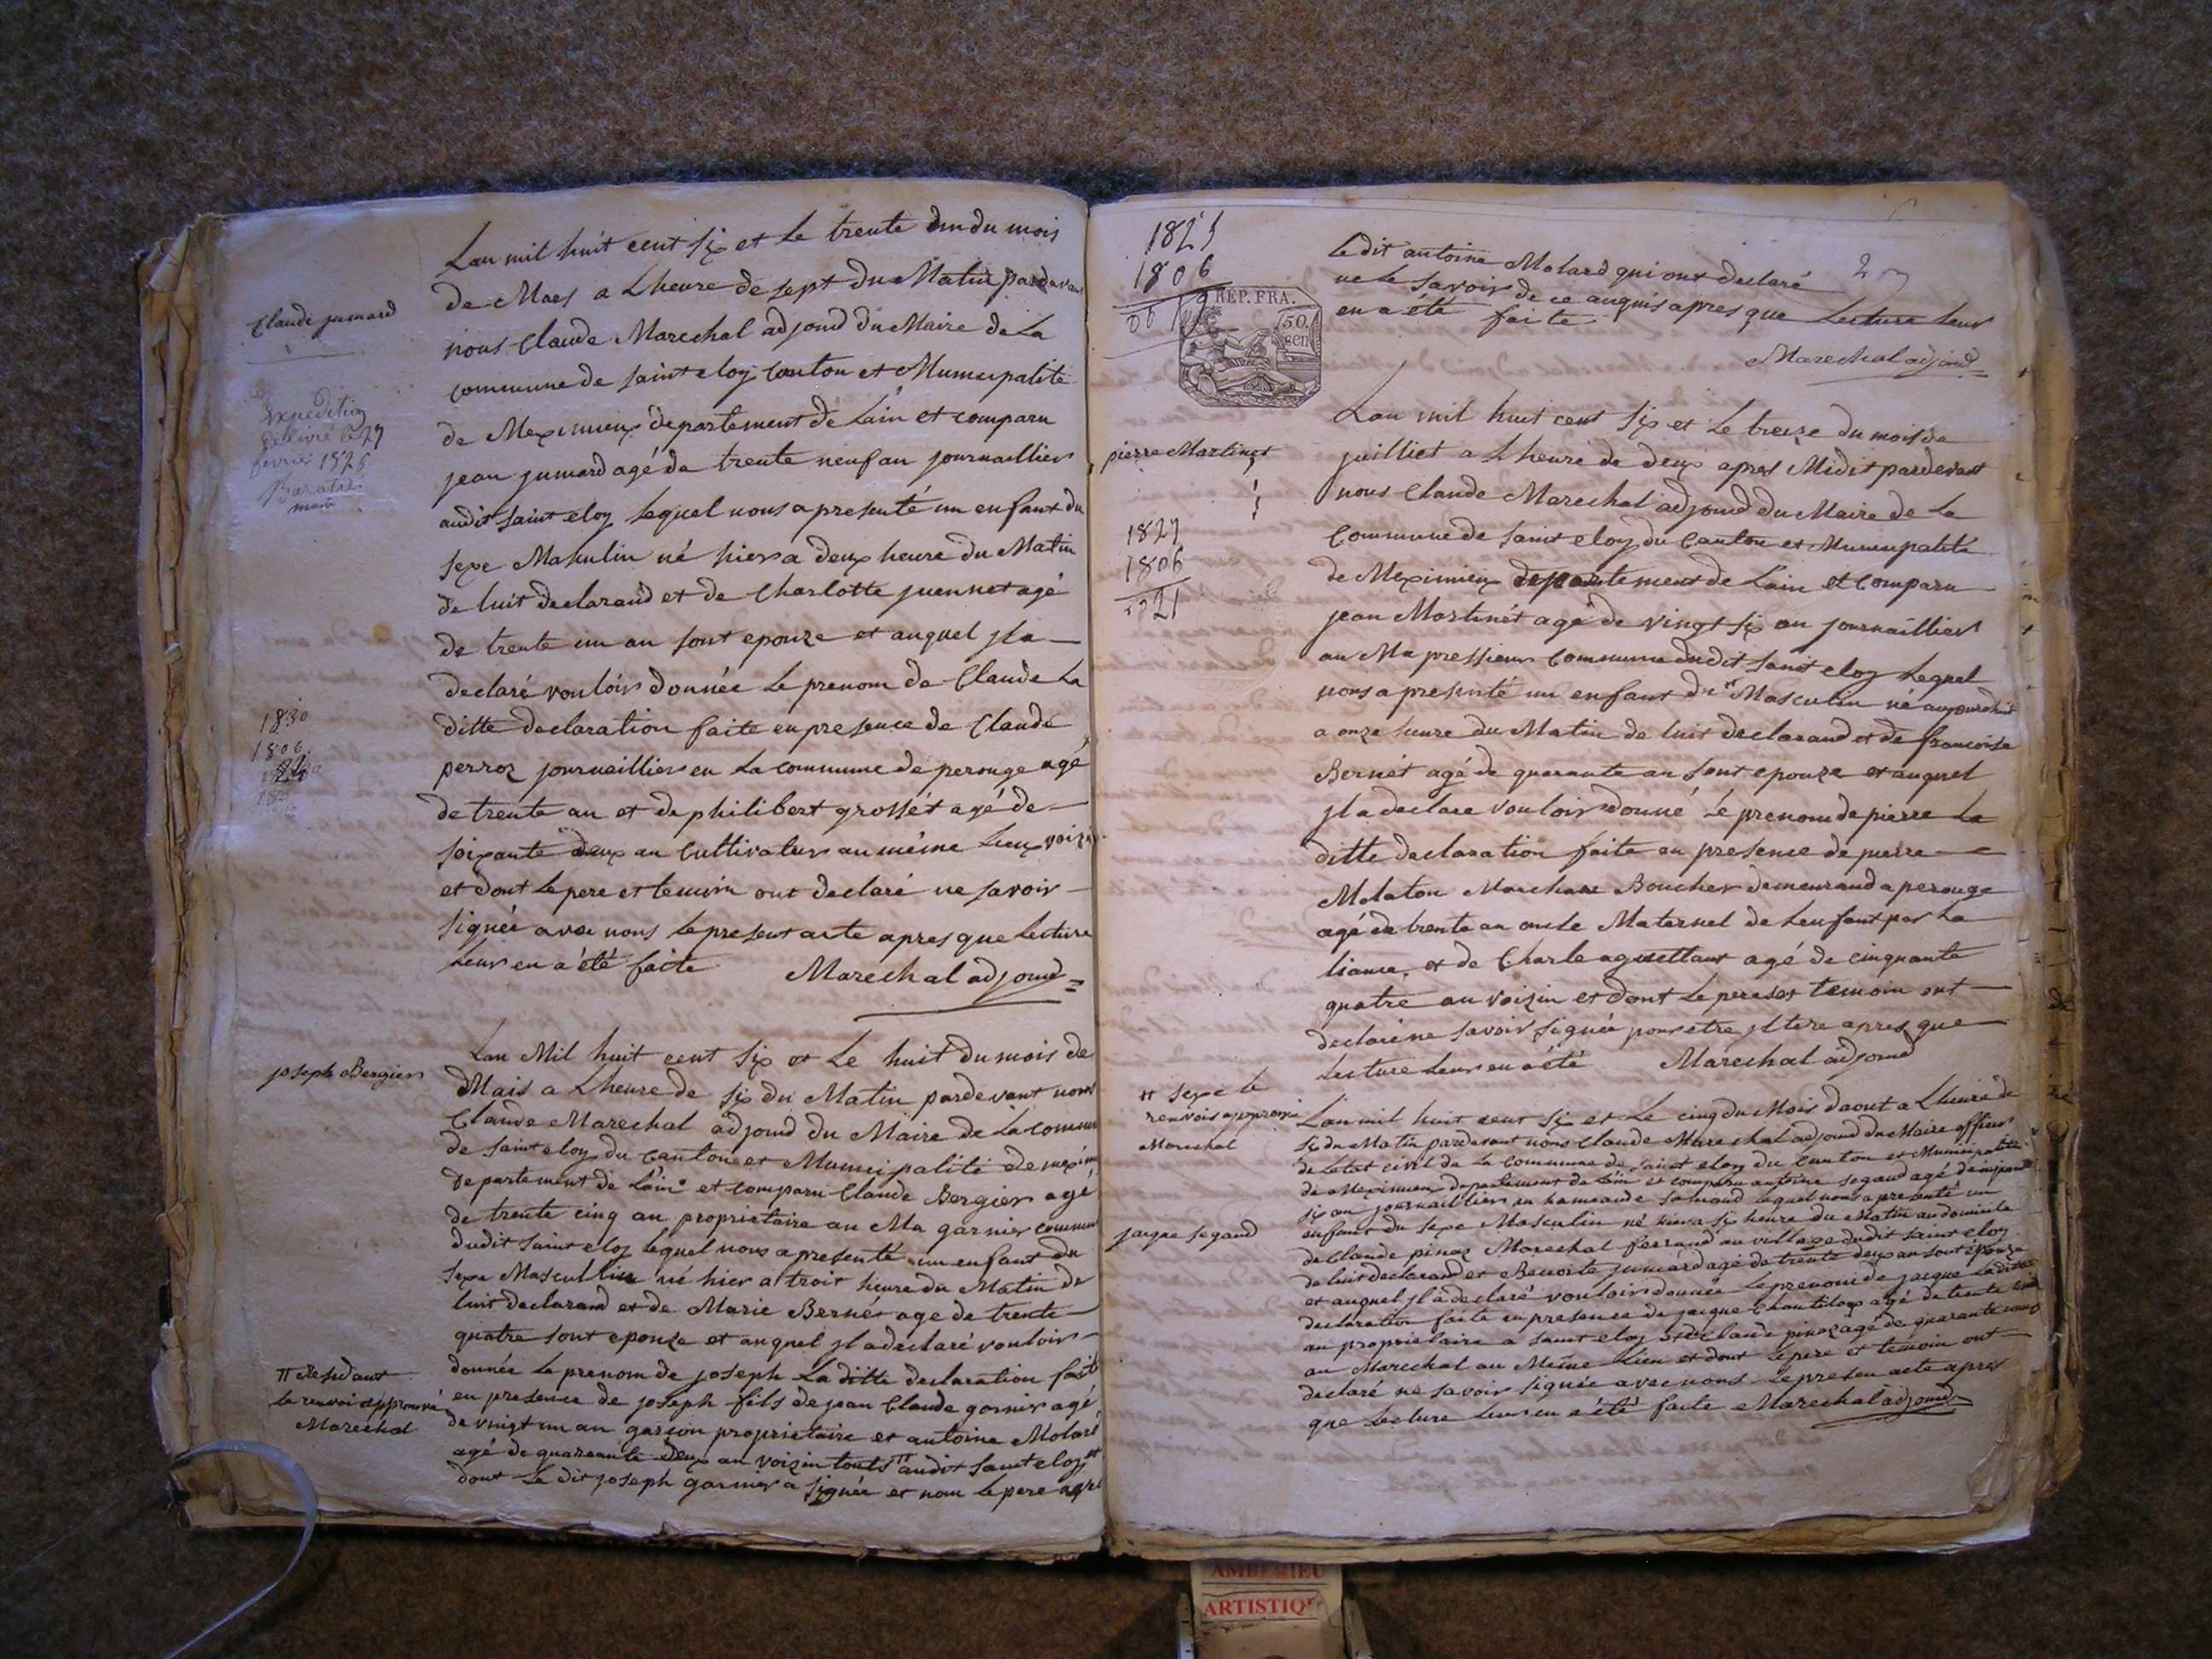 Claude jumard
Expedition
delivré le 27
fevrier 1825
maire
1830
1806
Lan mil huit cent six et Le trente du mois
de Mars a Lheure de sept du Matin pardevant
nous Claude Marechal adjoind du Maire de La
commune de saint eloy Conton et Municipalité
de Meximieux departement de Lain et comparu
jean jumard agé de trente neuf an journaillier
audit saint eloy Lequel nous a presenté un enfant du
sexe Mahulin né hier a deux heure du Matin
de luit declarand et de Charlotte juennet agé
de trente un an sont epouze et auquel jl a
declaré vouloir donnée Le prenom de Claude La
ditte declaration faite en presence de Claude
perroz journaillier en La commune de perouge agé
de trente an et de philibert grossét agé de
soixante deux an Cultivateur au même Lieux voizin
et dont Le pere et temoin ont declaré ne savoir
signée avec nous Le present acte apres que Lecture
Leur en a été faite Marechal adjoind
joseph Bergier
Lan Mil huit cent six et Le huit du mois de
Mais a Lheure de six du Matin pardevant nous
Claude Marechal adjoind du Maire de La commune
de saint eloy du Canton et Municipalité de
Departement de Lain et comparu Claude Bergier agé
de trente cinq an proprietaire au Ma garnier commune
dudit saint eloy Lequel nous a presenté un enfant du
sexe Mascullin né hier a trois heure du Matin de
luit declarand et de Marie Bernét age de trente
quatre sont epouze et auquel jl a declaré vouloir
donnée Le prenom de joseph La ditte declaration fait
en presence de joseph fils de jean Claude garnier agé
de vingt un an garcon proprietaire et antoine Molard
agé de quareante deux an voizin touts audit saint eloy et
dont Le dit joseph garnier a signée et nom Le pere
residant
le renvoi approuvé
Marechal
1825
1806
0019
REP. FRA.
50.
cen
Ledit antoine Molard qui ont declaré
ne Le savoir de ce auquis apres que Lecture Leur
en a été faite
Marechal adjoind
pierre Martinet
1827
1806
21
Lan mil huit cent six et Le treize du mois de
juilliet a Lheure de deux apres Midit pardevant
nous Claude Marechal adjoind du Maire de La
Commune de saint eloy du Canton et Municipalité
de Meximieux departement de Lain et Comparu
jean Martinét agé de vingt six an journaillier
au Ma pressieux Commune dudit saint eloy Lequel
nous a presenté un enfant du Masculin né aujourdhuit
a onze heure du Matin de luit declarand et de francoise
Bernét agé de quarante an sont epouze et auquel
jl a declare vouloir donné Le prenom de pierre La
ditte declaration faite en presence de pierre
Molaton Marchant Boucher demeurand a perouge
agé de trente an oncle Maternel de Lenfant par La
liance, et de Charle aguettant agé de cinquante
quatre an voizin et dont Le pere et temoin ont
declaré ne savoir signée pour etre jltere apres que
Lecture Leur en a été Marechal adjoind
sexe le
renvois approuvé
Marechal
jacque segaud
Lan mil huit cent six et Le cinq du Mois daout a Lheure de
six du Matin pardevant nous Claude Marechal adjoind du Maire officier
de Letat civil de La Commune de saint eloy du Canton et Municipalité
de Meximieux departement de Lain et comparu antoine segaud agé de
six an journaillier en hameaude Lequel nous a presenté un
enfant du sexe Masculin né hier a six heure du Matin au domicile
de Claude pinaz Marechal ferrand au village dudit saint eloy
de luit declarand et Benoite jumard agé de trente deux an sont epouze
et auquel jl a declaré vouloir donnée Le prenom de jacque Laditte
declaration faite en presence de jacque Chantiloup agé de trente
an proprietaire a saint eloy et de Claude pinaz agé de quarante
an Marechal au Même Lieu et dont Le pere et temoin ont
declaré ne savoir signée avec nous Le presen acte apres
que Lecture Leur en a été faite Marechal adjoind
AMBERIEU
ARTISTIQUE